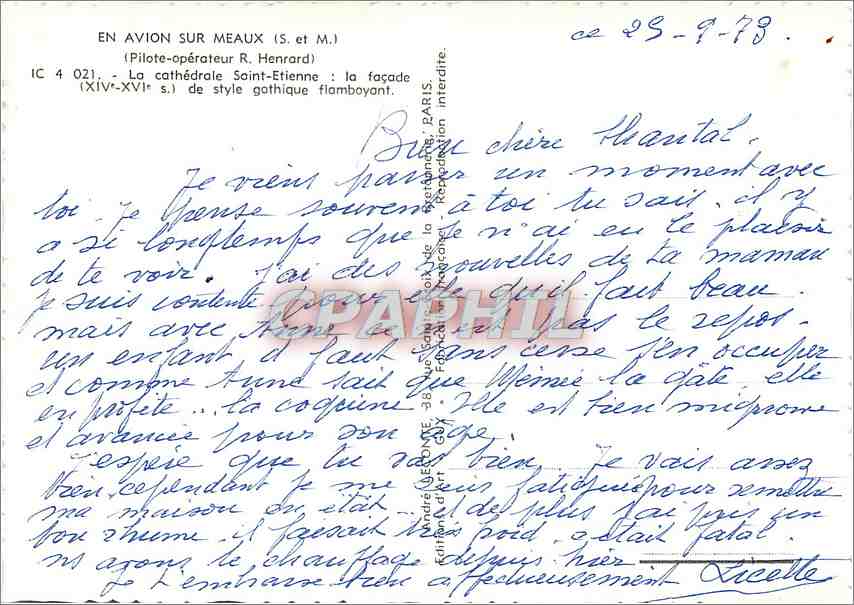 EN AVION SUR MEAUX (S. et M.)
(Pilote-opérateur R. Henrard)
IC 4 021. - La cathédrale Saint-Etienne : la façade
(XIVe-XVIe s.) de style gothique flamboyant.
ce 25-9-73.
Bien chère Chantal.
Je viens passer un moment avec
toi. Je pense souvent à toi tu sais. il y
a si longtemps que je n'ai eu le plaisir
de te voir. J'ai des nouvelles de ta maman
je suis contente pour elle qu'il fait beau.
mais avec Anne ce n'est pas le repos.
un enfant il faut sans cesse s'en occuper
et comme Anne sait que Mémée la gâte, elle
en profite... la coquine. Elle est bien mignonne
et avancée pour son âge.
J'espère que tu vas bien. Je vais assez
bien, cependant je me suis fatiguée pour remettre
ma maison en état... et de plus j'ai pris un
bon rhume. il faisait très froid. c'était fatal.
ns avons le chauffage depuis hier
Je t'embrasse bien affectueusement Licette
André LECONTE, 38, rue Sainte-Croix de la Bretonnerie, PARIS.
Edition d'Art "GUY" - Fabrication Française - Reproduction interdite.
CPAPHIL